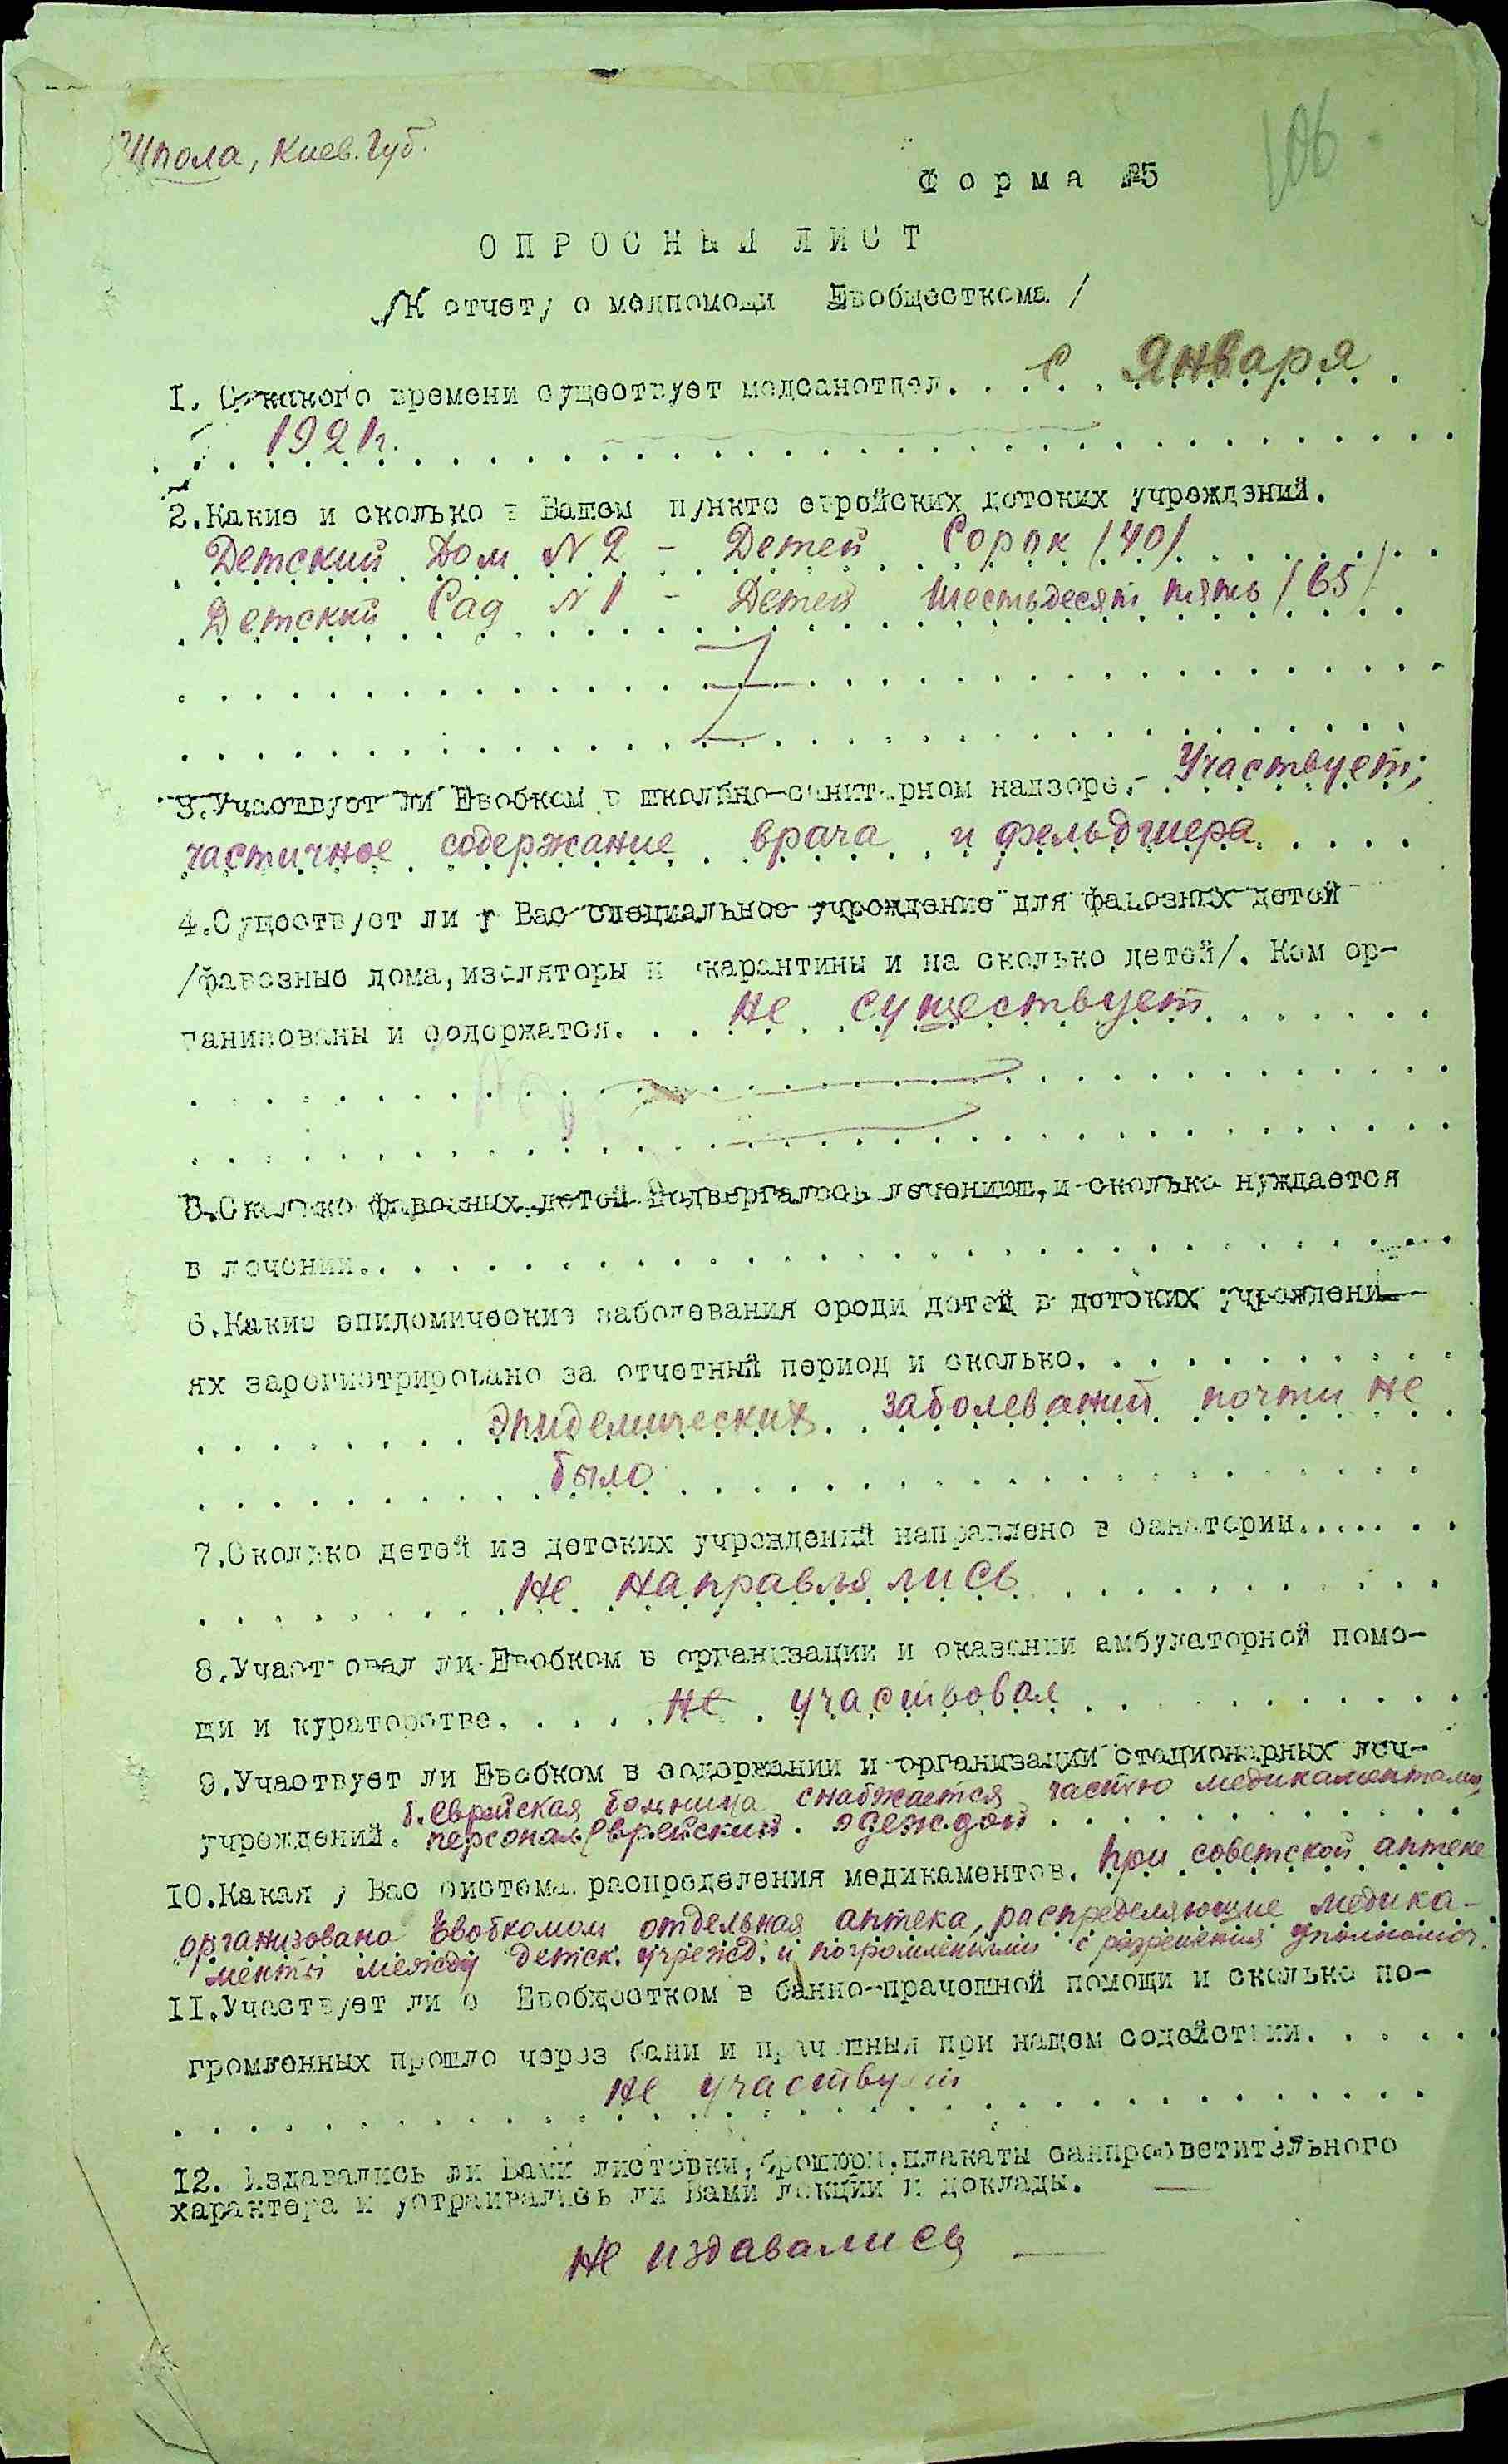 Шпола, Киев. Губ.
106
Форма №5
ОПРОСНЫЙ ЛИСТ
/К отчету о медпомощи Евобщесткома/
1. С какого времени существует медсанотдел. . . . с Января
1921 г.
2. Какие и сколько в Вашем пункте еврейских детских учреждений.
Детский Дом N 2 – Детей Сорок /40/
Детский Сад N 1 – Детей шестьдесят пять /65/
3. Участвует ли Евобком в школьно-санитарном надзоре. – Участвует,
частичное содержание врача и фельдшера
4. Существует ли у Вас специальное учреждение для фавозных детей
/фавозные дома, изоляторы и карантины и на сколько детей/. Кем ор-
ганизованы и содержатся. . . не существует
5. Сколько фавозных детей подвергалось лечению, и сколько нуждается
в лечении.
6. Какие эпидемические заболевания среди детей в детских учреждени-
ях зарегистрировано за отчетный период и сколько.
Эпидемических заболеваний почти не
было
7. Сколько детей из детских учреждений направлено в санатории.
Не направлялись
8. Участвовал ли Евобком в организации и оказании амбулаторной помо-
щи и кураторстве. . . . . не участвовал
9. Участвует ли Евобком в содержании и организации стационарных леч-
б. еврейская больница снабжается частью медикаментами,
учреждений. персонал еврейский одеждой
10. Какая у Вас система распределения медикаментов. При советской аптеке
организована Евобкомом отдельная аптека, распределяющие медика-
менты между детск. учрежд. и погромленными с разрешения Уполномоч.
11. Участвует ли Евобщестком в банно-прачешной помощи и сколько по-
громленных прошло через бани и прачешныя при нашем содействии.
не участвует
12. Издавались ли Вами листовки, брошюры, плакаты санпросветительного
характера и устраивались ли Вами лекции и доклады. —
Не издавались —